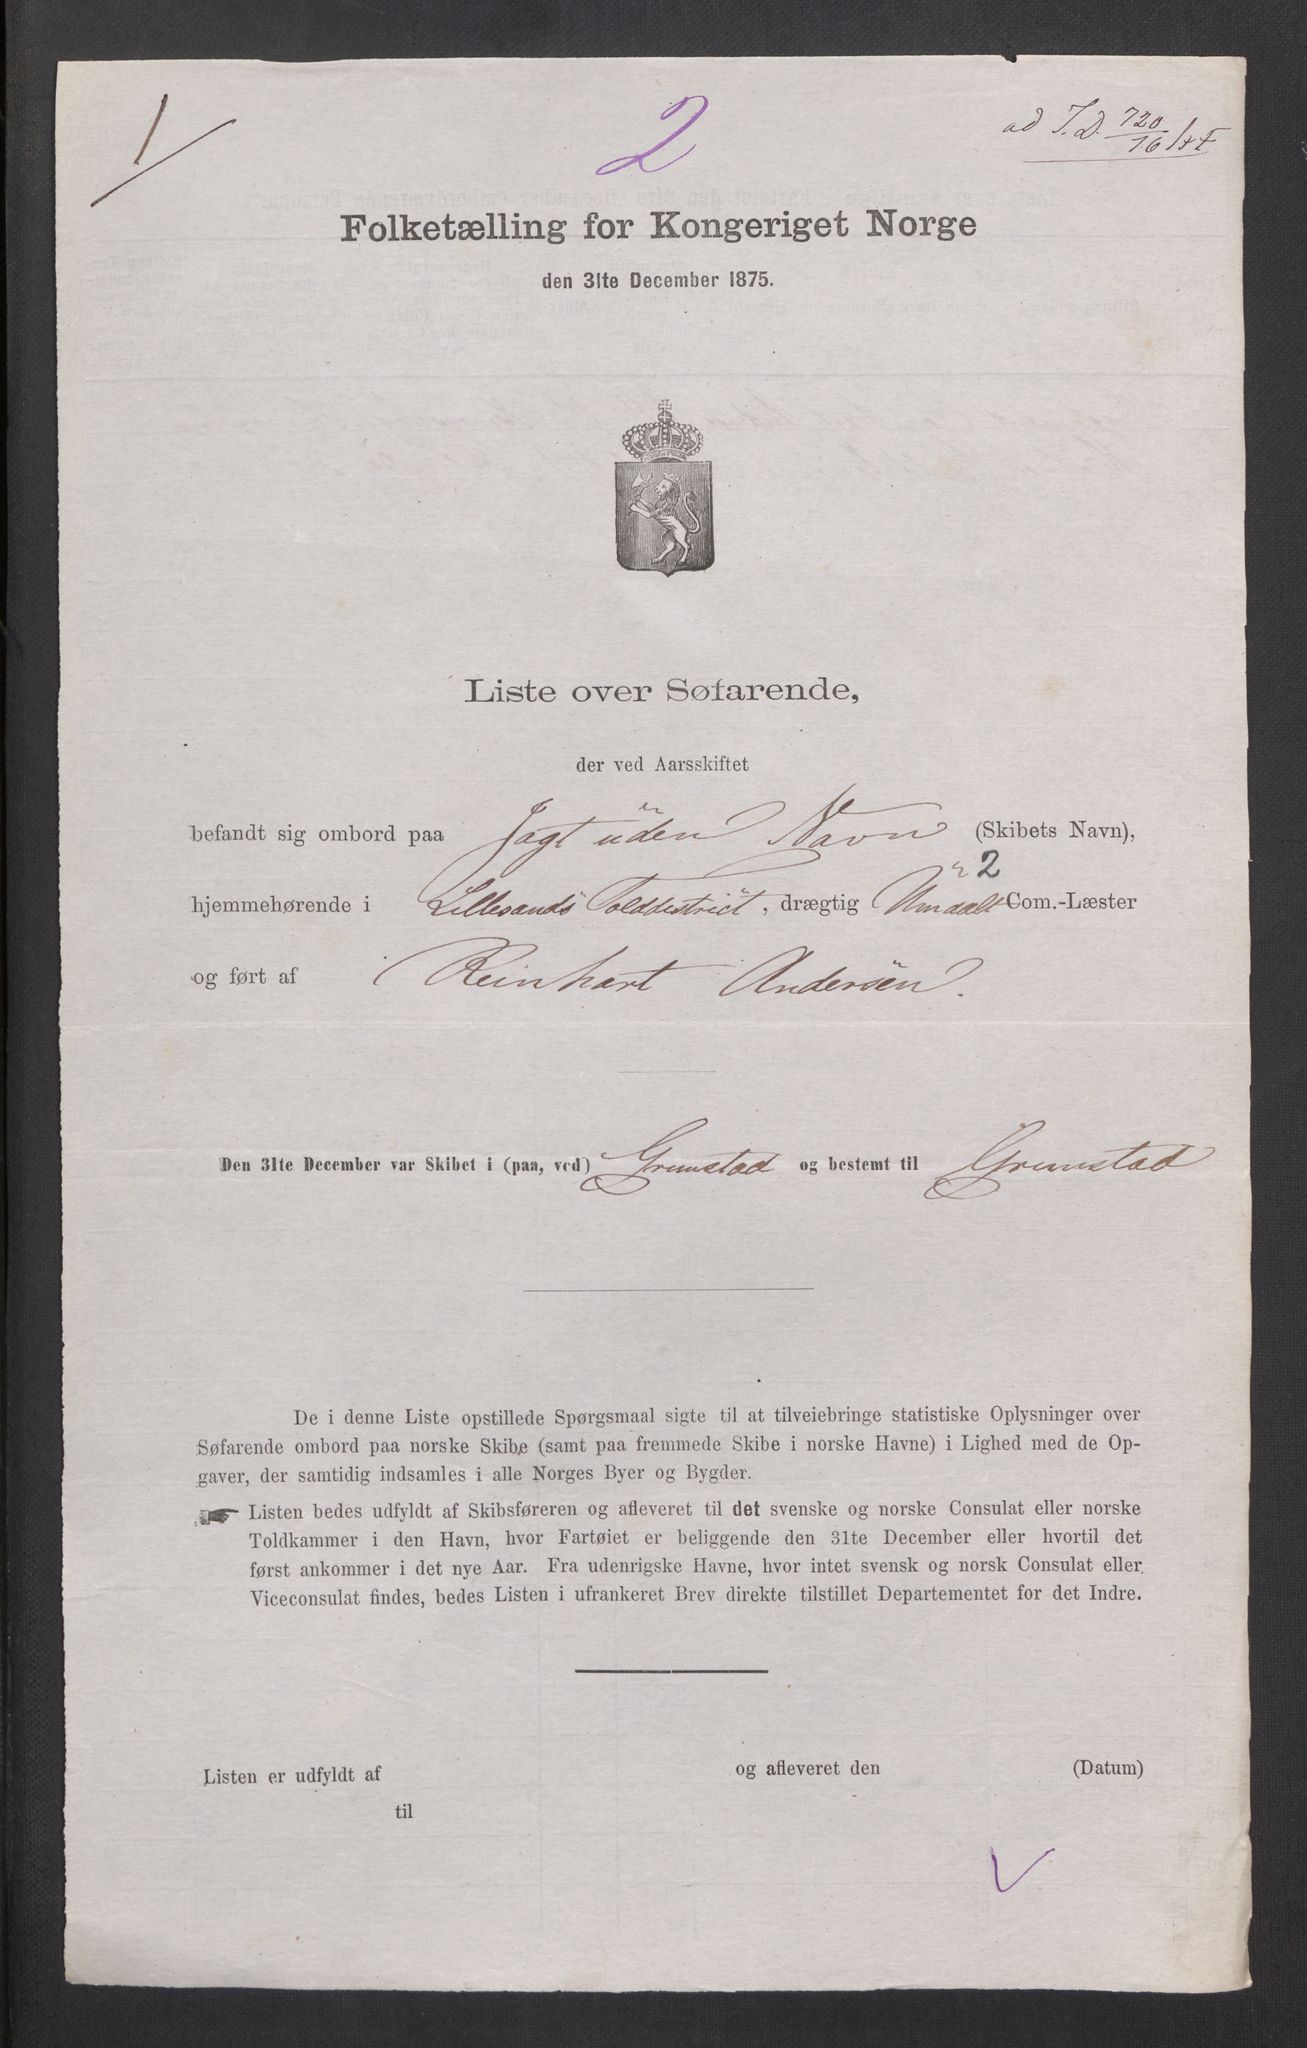 1
2
ad J.D. 720/76
Folketælling for Kongeriget Norge
den 31te December 1875.
Liste over Søfarende,
der ved Aarsskiftet
befandt sig ombord paa Jagt uden Navn (Skibets Navn),
2
hjemmehørende i Lillesands Tolddistrict, drægtig Umaalt Com.-Læster
og ført af Reinhart Andersen.
Den 31te December var Skibet i (paa, ved) Grimstad og bestemt til Grimstad
De i denne Liste opstillede Spørgsmaal sigte til at tilveiebringe statistiske Oplysninger over
Søfarende ombord paa norske Skibe (samt paa fremmede Skibe i norske Havne) i Lighed med de Op-
gaver, der samtidig indsamles i alle Norges Byer og Bygder.
☛ Listen bedes udfyldt af Skibsføreren og afleveret til det svenske og norske Consulat eller norske
Toldkammer i den Havn, hvor Fartøiet er beliggende den 31te December eller hvortil det
først ankommer i det nye Aar. Fra udenrigske Havne, hvor intet svensk og norsk Consulat eller
Viceconsulat findes, bedes Listen i ufrankeret Brev direkte tilstillet Departementet for det Indre.
Listen er udfyldt af og afleveret den (Datum)
til